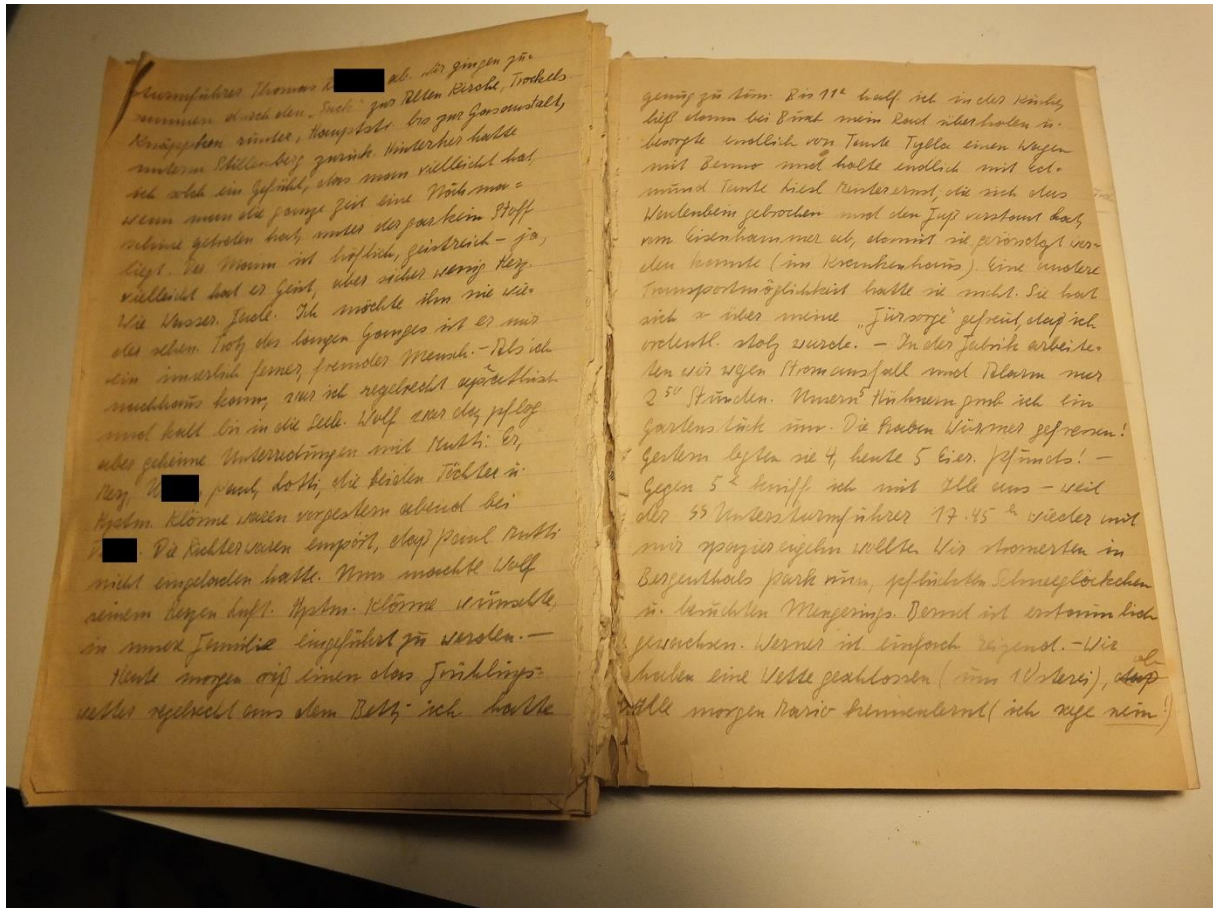 sturmführer Thomas K ab. Wir gingen zu=
sammen durch den „Suck" zur Alten Kirche, Trockels
Knäppchen runter, Hauptstr. bis zur Gasanstalt,
unterm Stillenberg zurück. Hinterher hatte
ich solch ein Gefühl, das man vielleicht hat,
wenn man die ganze Zeit eine Nähma=
schine getreten hat, unter der gar kein Stoff
liegt. Der Mann ist höflich, geistreich – ja,
vielleicht hat er Geist, aber sicher wenig Herz.
Wie Wasser. Fade. Ich möchte ihn nie wie=
der sehen. Trotz des langen Ganges ist er nur
ein innerlich ferner, fremder Mensch. – Als ich
nachhaus kam, war ich regelrecht
und kalt bis in die Seele. Wolf war da, pflog
aber geheime Unterredungen mit Mutti: Er,
W, Paul, Lotti, die beiden Töchter u.
Hptm. Klönne waren vorgestern abend bei
D. Die waren empört, daß Paul Mutti
nicht eingeladen hatte. Nun machte Wolf
seinem Herzen Luft. Hptm. Klönne wünschte,
in unsere Familie eingeführt zu werden. –
Heute morgen riß einen das Frühlings=
wetter regelrecht aus dem Bett; ich hatte
genug zu tun. Bis 11ʰ half ich in der Küche,
ließ dann bei mein Rad überholen u.
besorgte endlich von Tante Tylla einen Wagen
mit Benno und holte endlich mit Ed=
mund Tante Liesl, die sich das
Wadenbein gebrochen und den Fuß verstaut hat,
vom Eisenhammer ab, damit sie geröntgt wer=
den konnte (im Krankenhaus). Eine andere
Transportmöglichkeit hatte sie nicht. Sie hat
sich so über meine „Fürsorge" gefreut, daß ich
ordentl. stolz wurde. – In der Fabrik arbeite=
ten wir wgen Stromausfall und Alarm nur
2⁵⁰ Stunden. Unsern 5 Hühnern grub ich ein
Gartenstück um. Die haben Würmer gefressen!
Gestern legten sie 4, heute 5 Eier. Pfunds! –
Gegen 5ʰ kniff ich mit Ille aus – weil
der SS Untersturmführer 17.45ʰ wieder mit
mir spazierengehn wollte. Wir stromerten in
Bergenthals Park rum, pflückten Schneeglöckchen
u. besuchten Mengerings. Bernd ist erstaunlich
gewachsen. Werner ist einfach reizend. – Wir
haben eine Wette geschlossen (um 1 Osterei), ob
Ille morgen Mario kennenlernt (ich sage nein!)